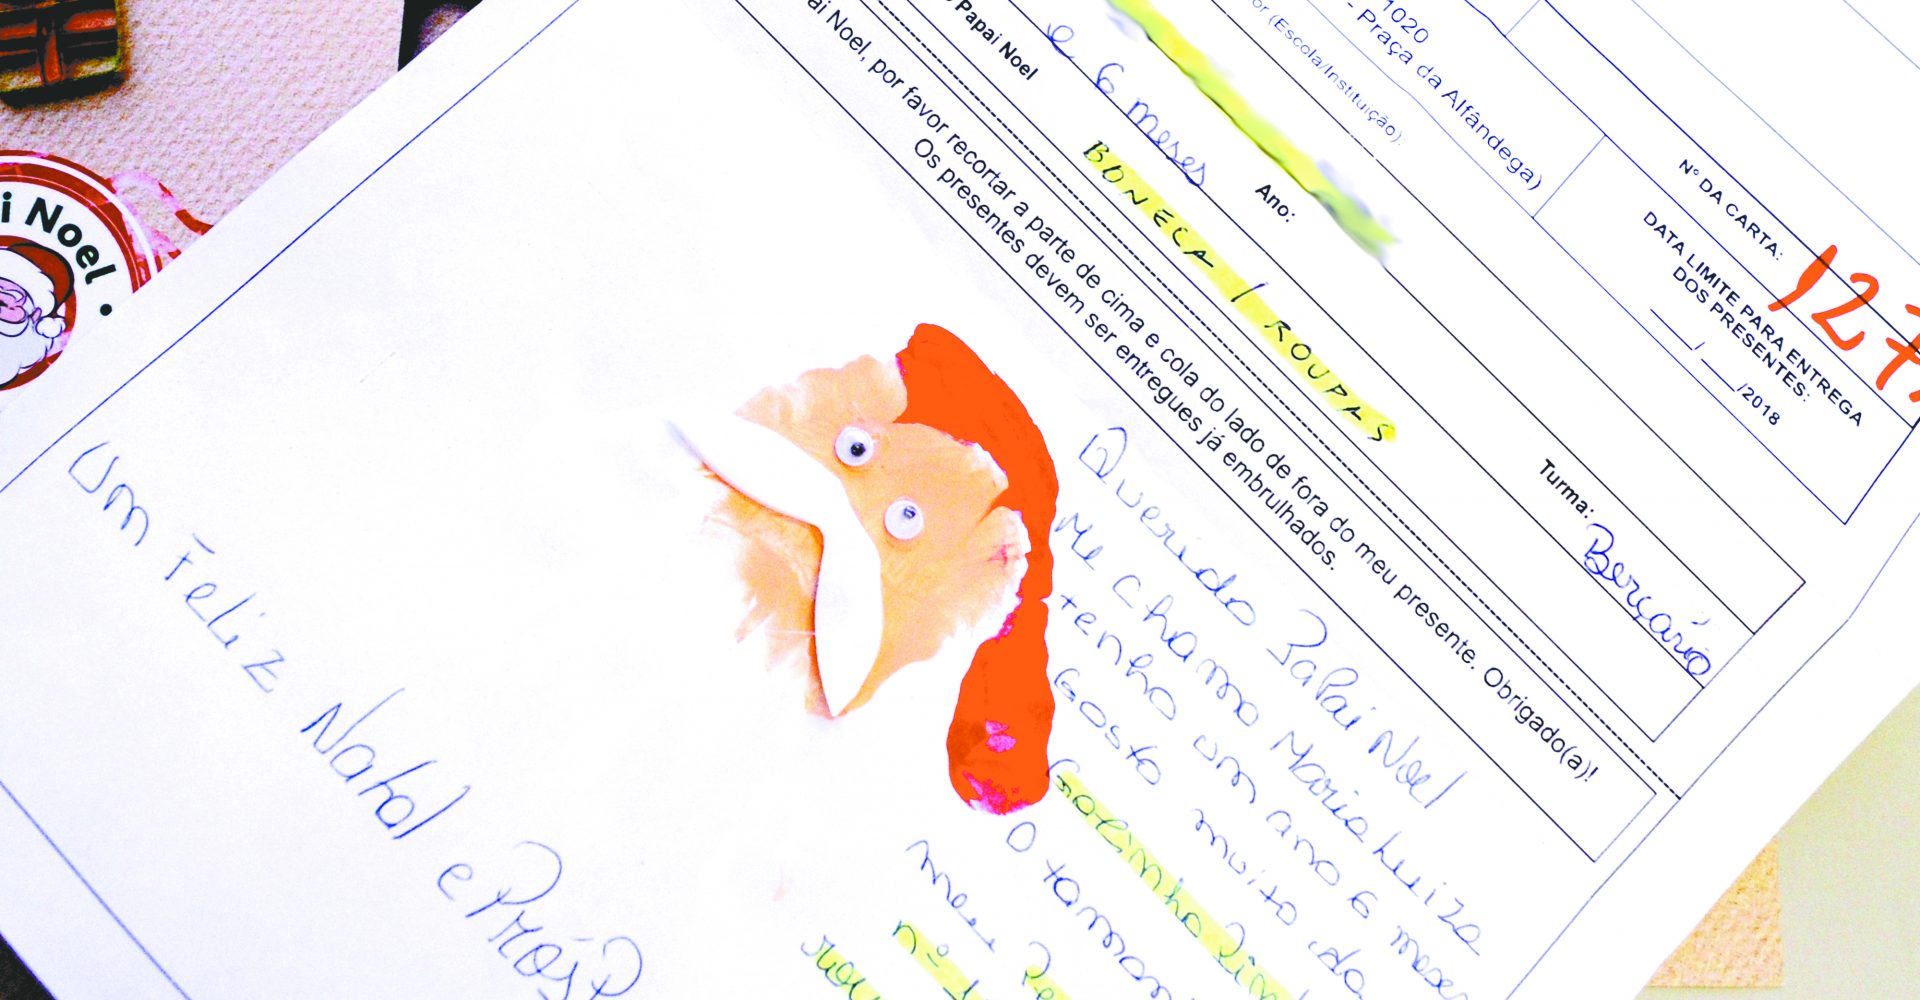 i Noel •
1020
- Praça da Alfândega)
or (Escola/Instituição):
Nº DA CARTA:
127
DATA LIMITE PARA ENTREGA
DOS PRESENTES:
__/__/2018
Papai Noel
e 6 meses
Ano:
Turma:
Berçário
BONECA / ROUPAS
ai Noel, por favor recortar a parte de cima e cola do lado de fora do meu presente. Obrigado(a)!
Os presentes devem ser entregues já embrulhados.
Querido Papai Noel
Me chamo Maria Luiza
tenho um ano 6 meses
Gosto muito da
Galinha
O
meu
nº
Um Feliz Natal e